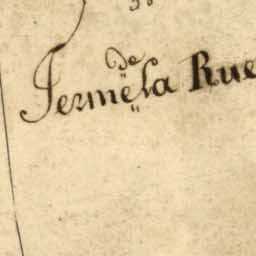 de
Ferme la Rue